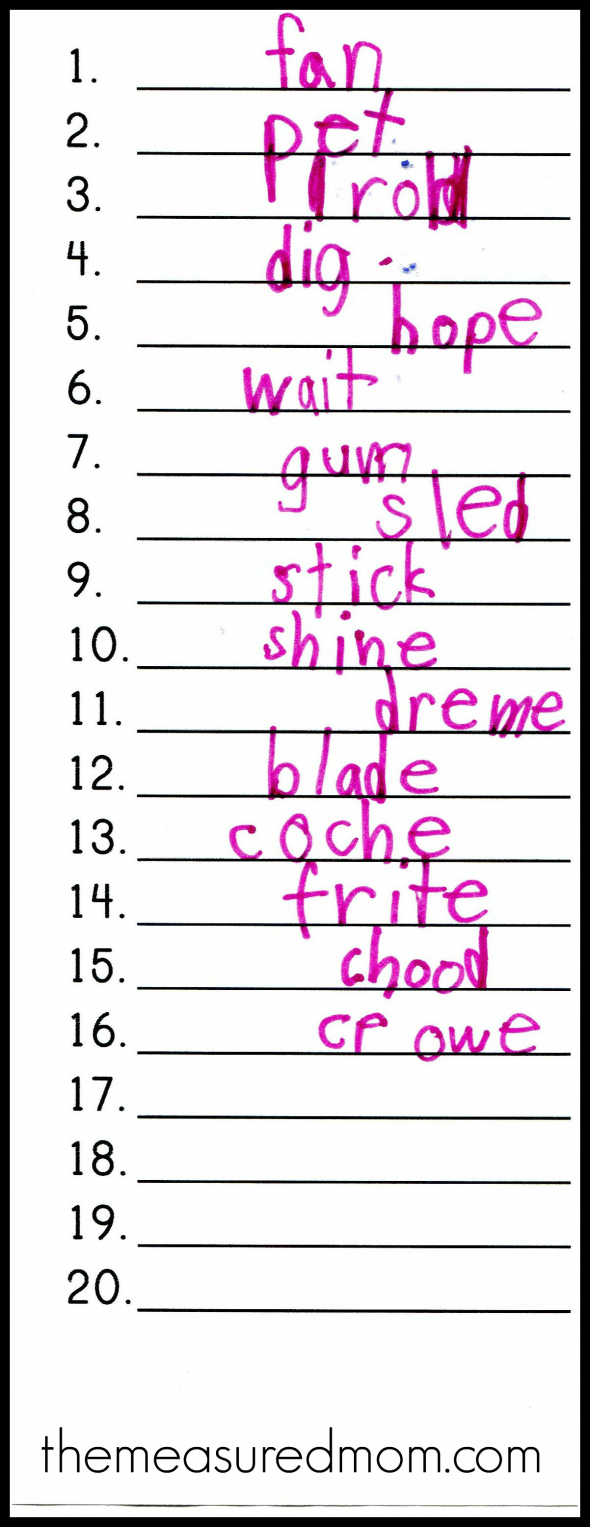 1. fan
2. pet
3.
4. dig
5. hope
6. wait
7. gum
8. sled
9. stick
10. shine
11. dreme
12. blade
13. coche
14. frite
15. chood
16. crowe
17.
18.
19.
20.
themeasuredmom.com